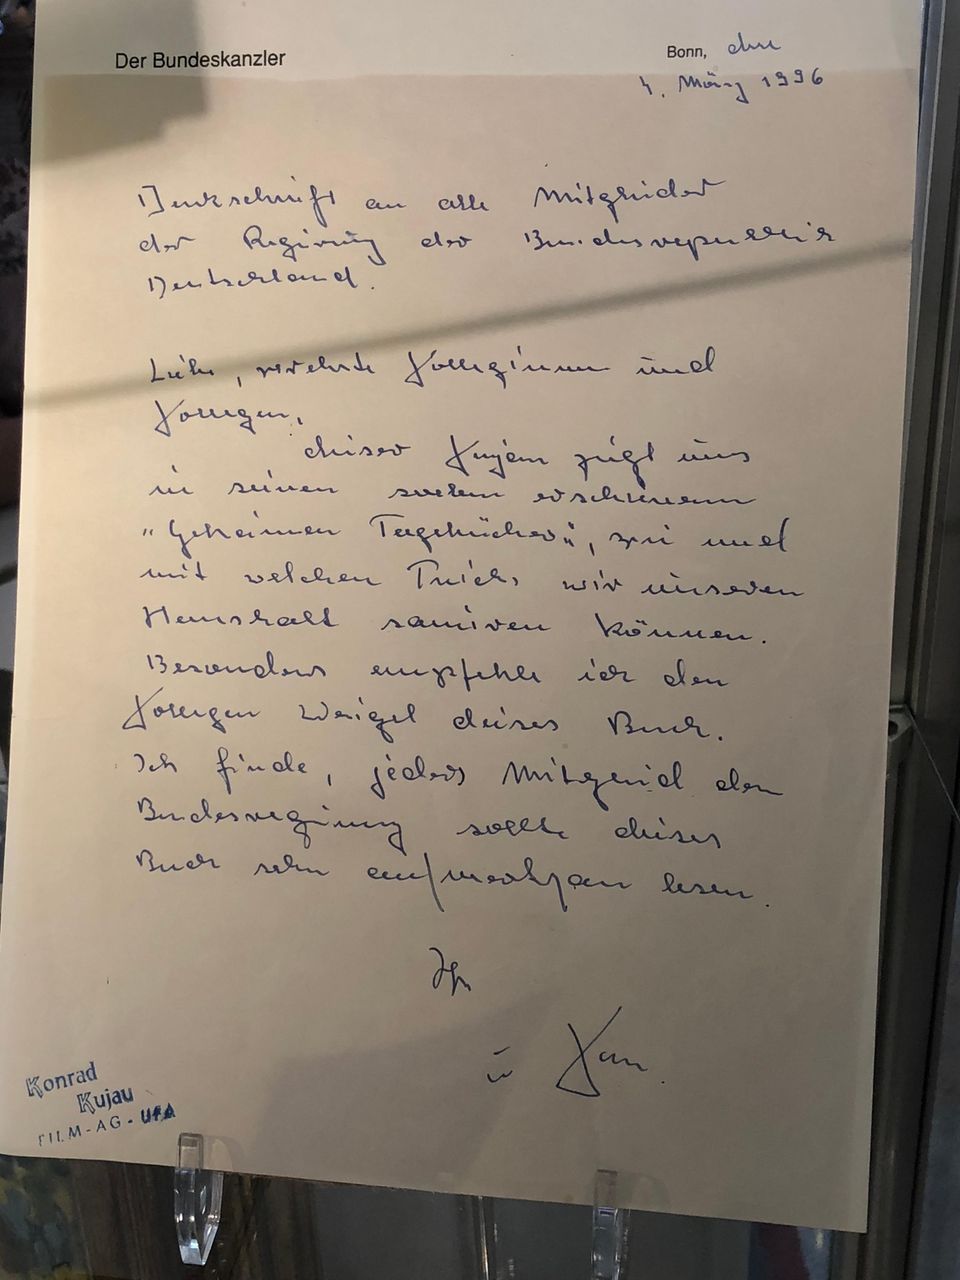 Der Bundeskanzler
Bonn, den
4. März 1996
Denkschrift an alle Mitglieder
der Regirung der Bundesrepublik
Deutschland.
Liebe, verehrte Kolleginnen und
Kollegen,
dieser Kujau zeigt uns
in seinen soeben erschienenen
"Geheimen Tagebücher", wie und
mit welchen Tricks wir unseren
Haushalt saniren können.
Besonders empfehle ich den
Kollegen Weigel dieses Buch.
Ich finde, jedes Mitglied der
Bundesregirung sollte dieses
Buch sehr aufmerksam lesen.
Ihr
Konrad
Kujau
FILM-AG-UFA